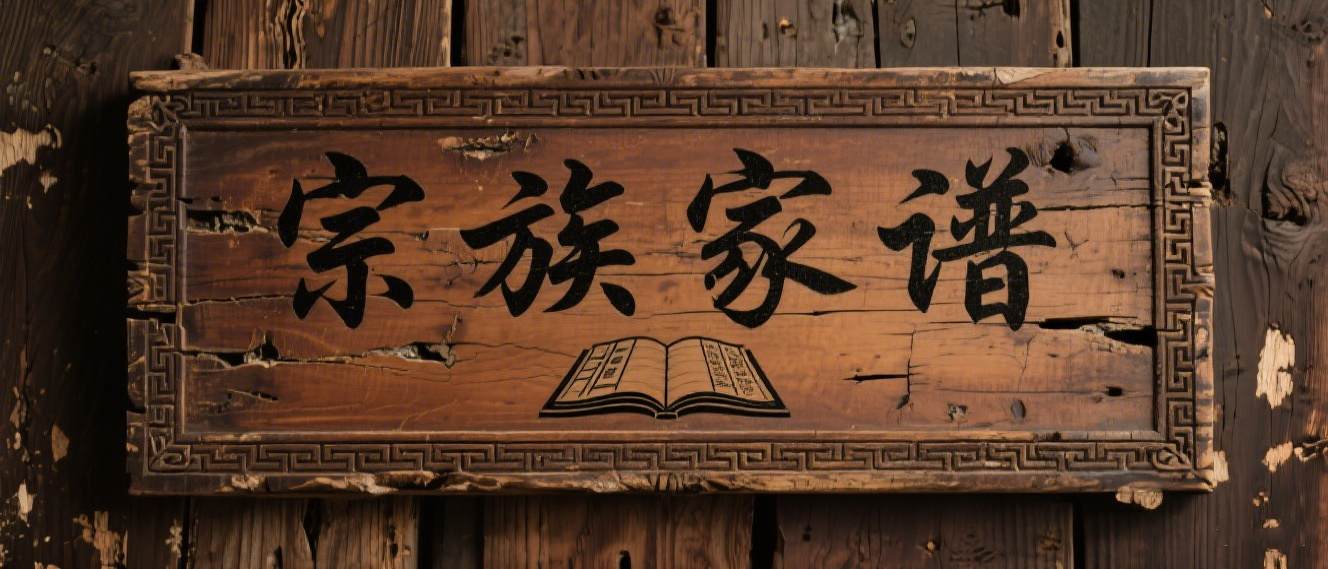 宗族家谱